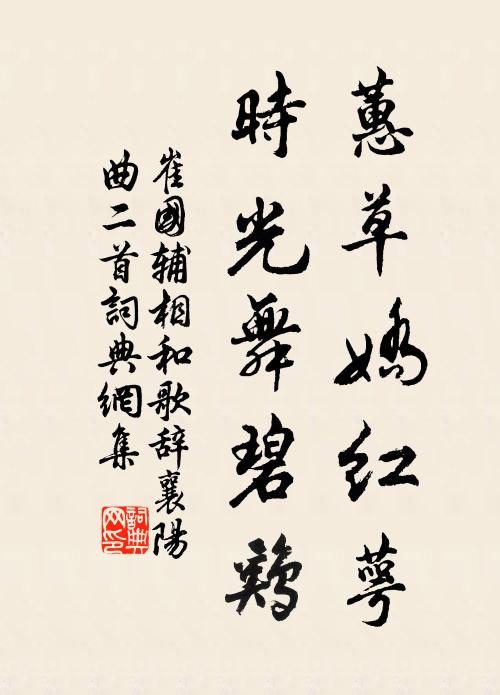 蕙草嬌红萼
時光舞碧鷄
崔國辅相和歌辞襄陽
曲二首詞典網集
詞典网印